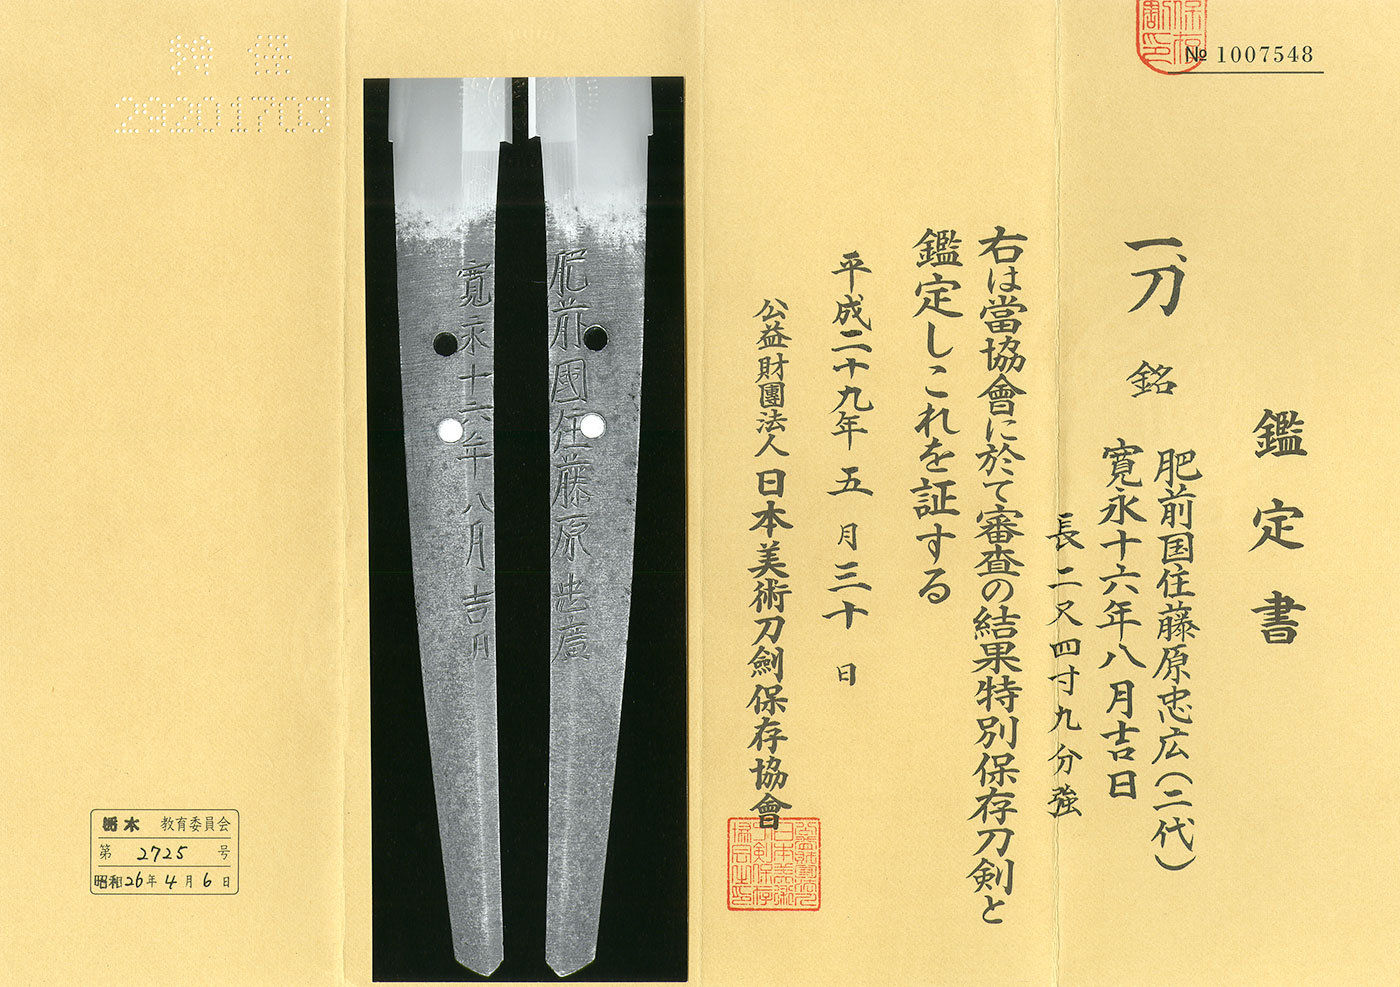 № 1007548
鑑定書
一、刀 銘 肥前国住藤原忠広(二代)
寛永十六年八月吉日
長二又四寸九分強
右は當協會に於て審査の結果特別保存刀剣と
鑑定しこれを証する
平成二十九年五月三十日
公益財團法人日本美術刀劍保存協會
肥前國住藤原忠廣
寛永十六年八月吉日
29201703
栃木 教育委員会
第 2725 号
昭和26年4月6日